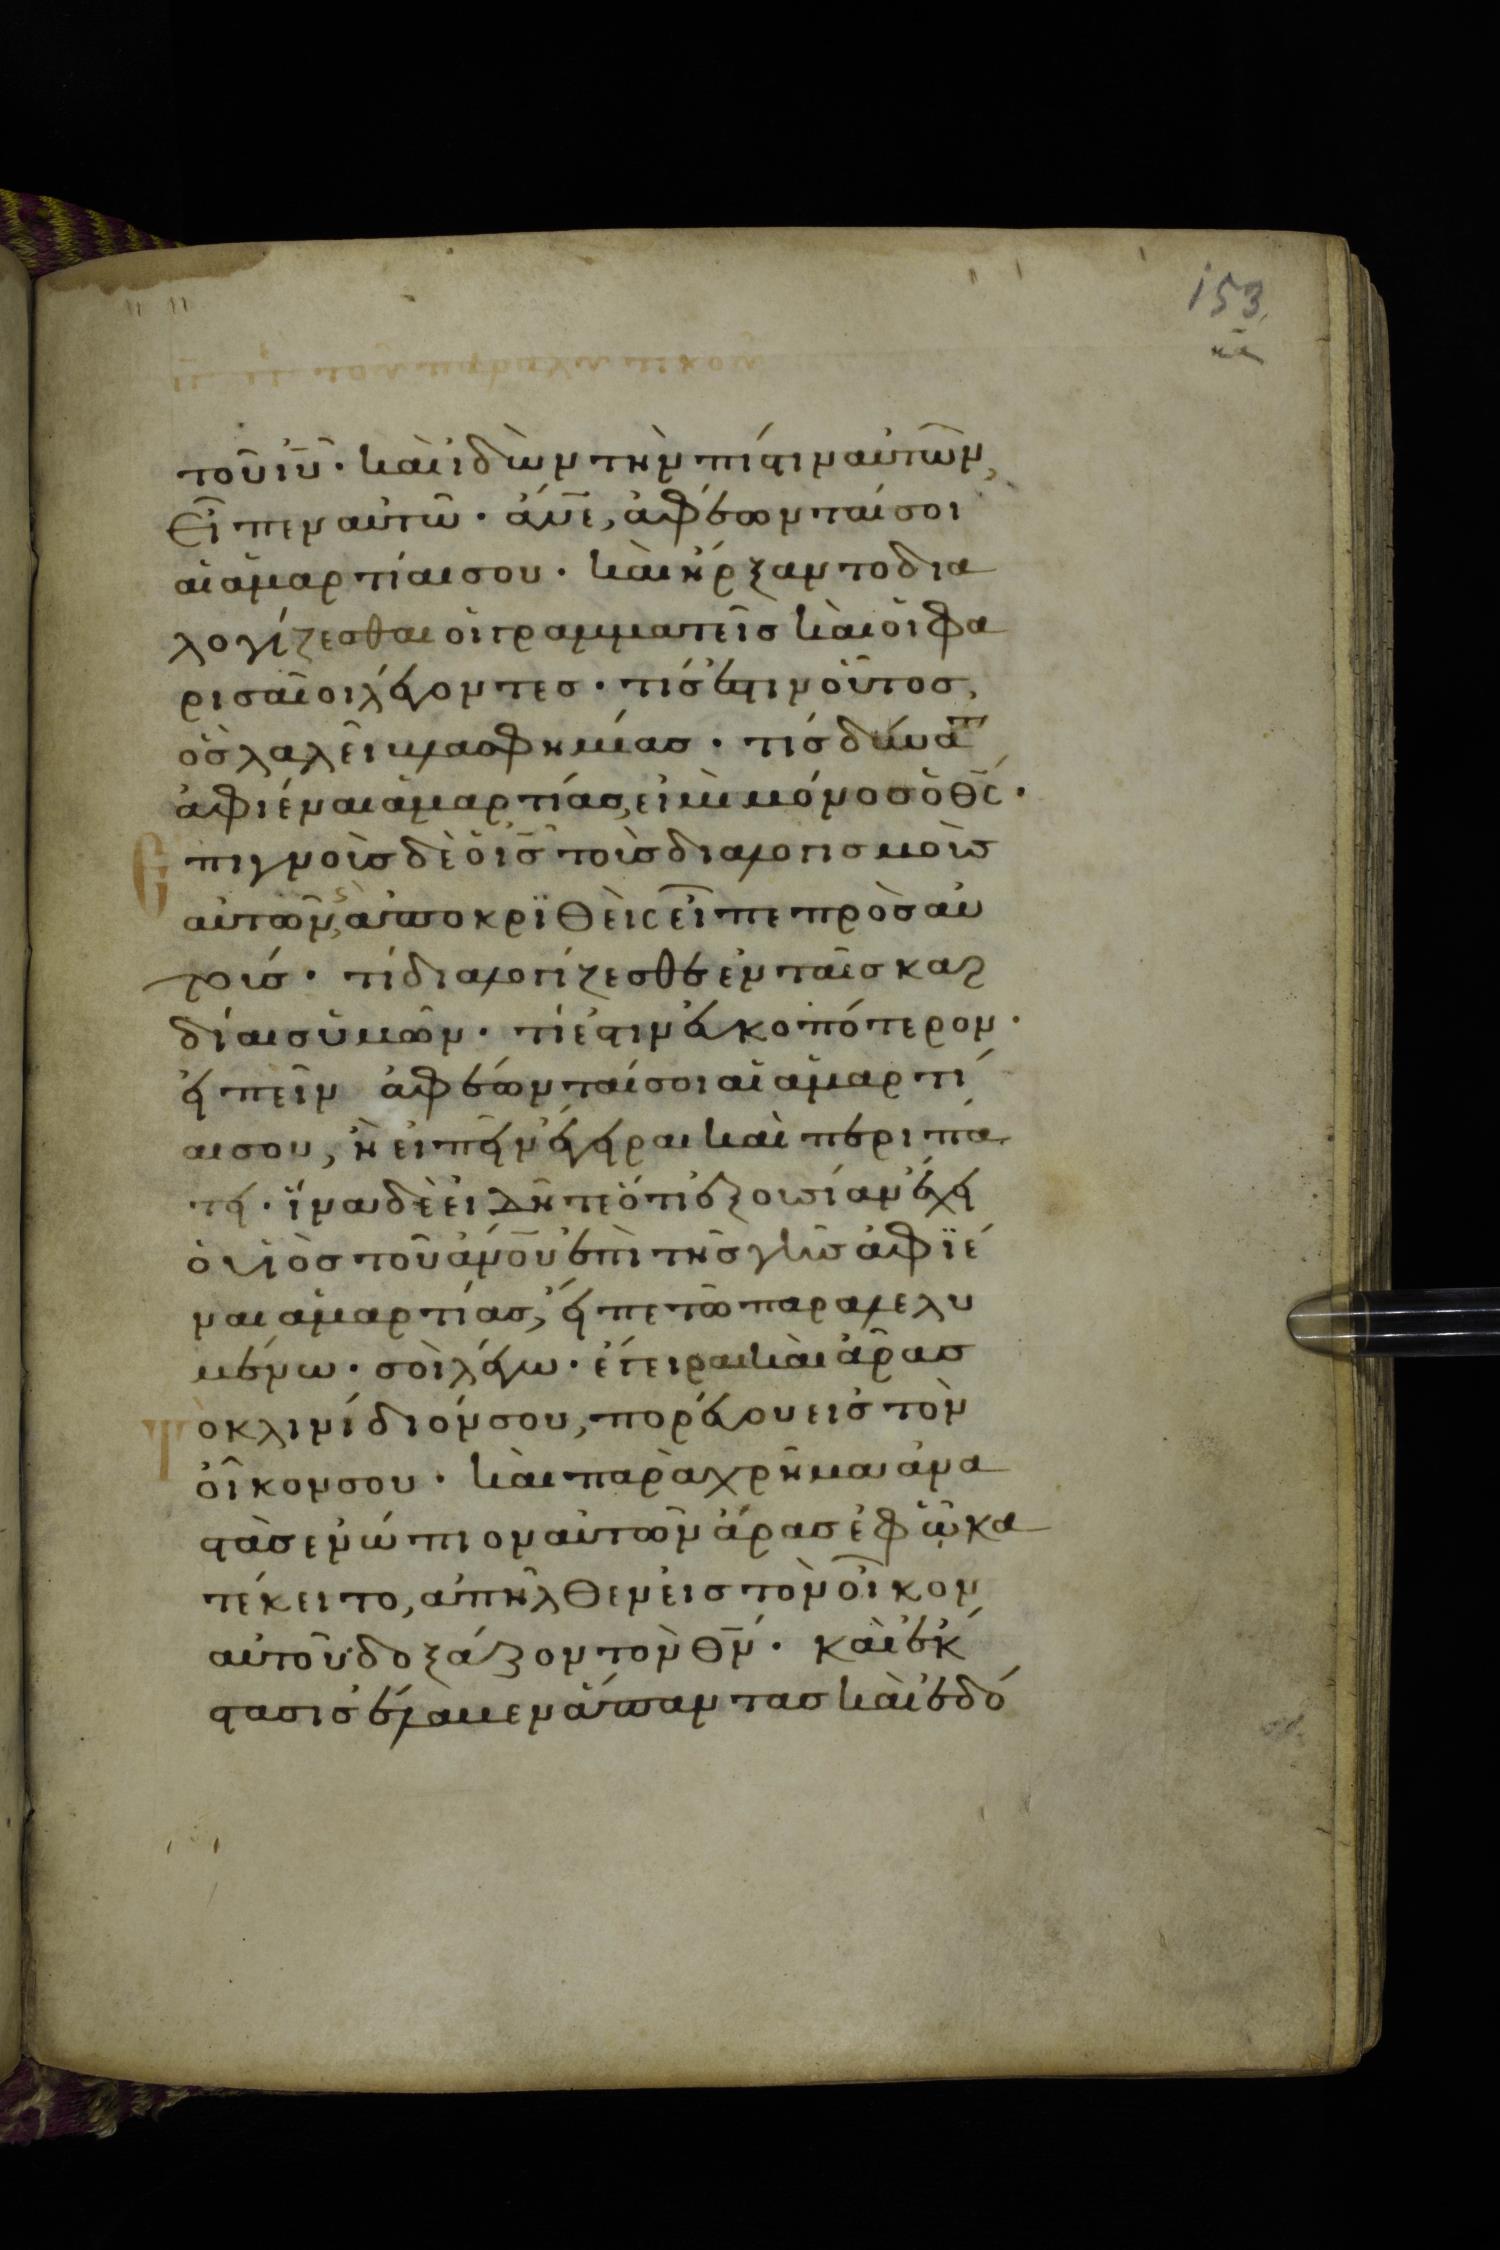 153
τοῦ ἰῦ · καὶ ἰδὼν τὴν πίστιν αὐτῶν,
εἶπεν αὐτῶ · ἄνε, ἀφέωνταί σοι
αἱ ἁμαρτίαι σου · καὶ ἤρξαντο δια
λογίζεσθαι οἱ γραμματεῖς καὶ οἱ φα
ρισαῖοι λέγοντες · τίς ἐστιν οὗτος,
ὃς λαλεῖ βλασφημίας · τίς δύνατ
ἀφιέναι ἁμαρτίας, εἰ μὴ μόνος ὁ θς ·
Επιγνοὺς δὲ ὁ ις τοὺς διαλογισμοὺς
αὐτῶν, ἀποκριθεὶς εἶπε πρὸς αὐ
τούς · τί διαλογίζεσθε ἐν ταῖς καρ
δίαις ὑμῶν · τί ἐστιν εὐκοπώτερον ·
εἰπεῖν ἀφέωνταί σοι αἱ ἁμαρτί
αι σου, ἢ εἰπεῖν ἔγειραι καὶ περιπά
τει · ἵνα δὲ εἰδῆτε ὅτι ἐξουσίαν ἔχει
ὁ υἱὸς τοῦ ἀνου ἐπὶ τῆς γῆς ἀφϊέ
ναι ἁμαρτίας, εἶπε τῶ παραλελυ
μένω · σοὶ λέγω · ἔγειραι καὶ ἄρας
Τὸ κλινίδιόν σου, πορεύου εἰς τὸν
οἶκον σου · καὶ παραχρῆμα ἀνα
στὰς ἐνώπιον αὐτῶν ἄρας ἐφ ᾧ κα
τέκειτο, ἀπῆλθεν εἰς τὸν οἶκον
αὐτοῦ δοξάζον τὸν θν · καὶ ἔκ
στασις ἔλαβεν ἅπαντας καὶ ἐδό